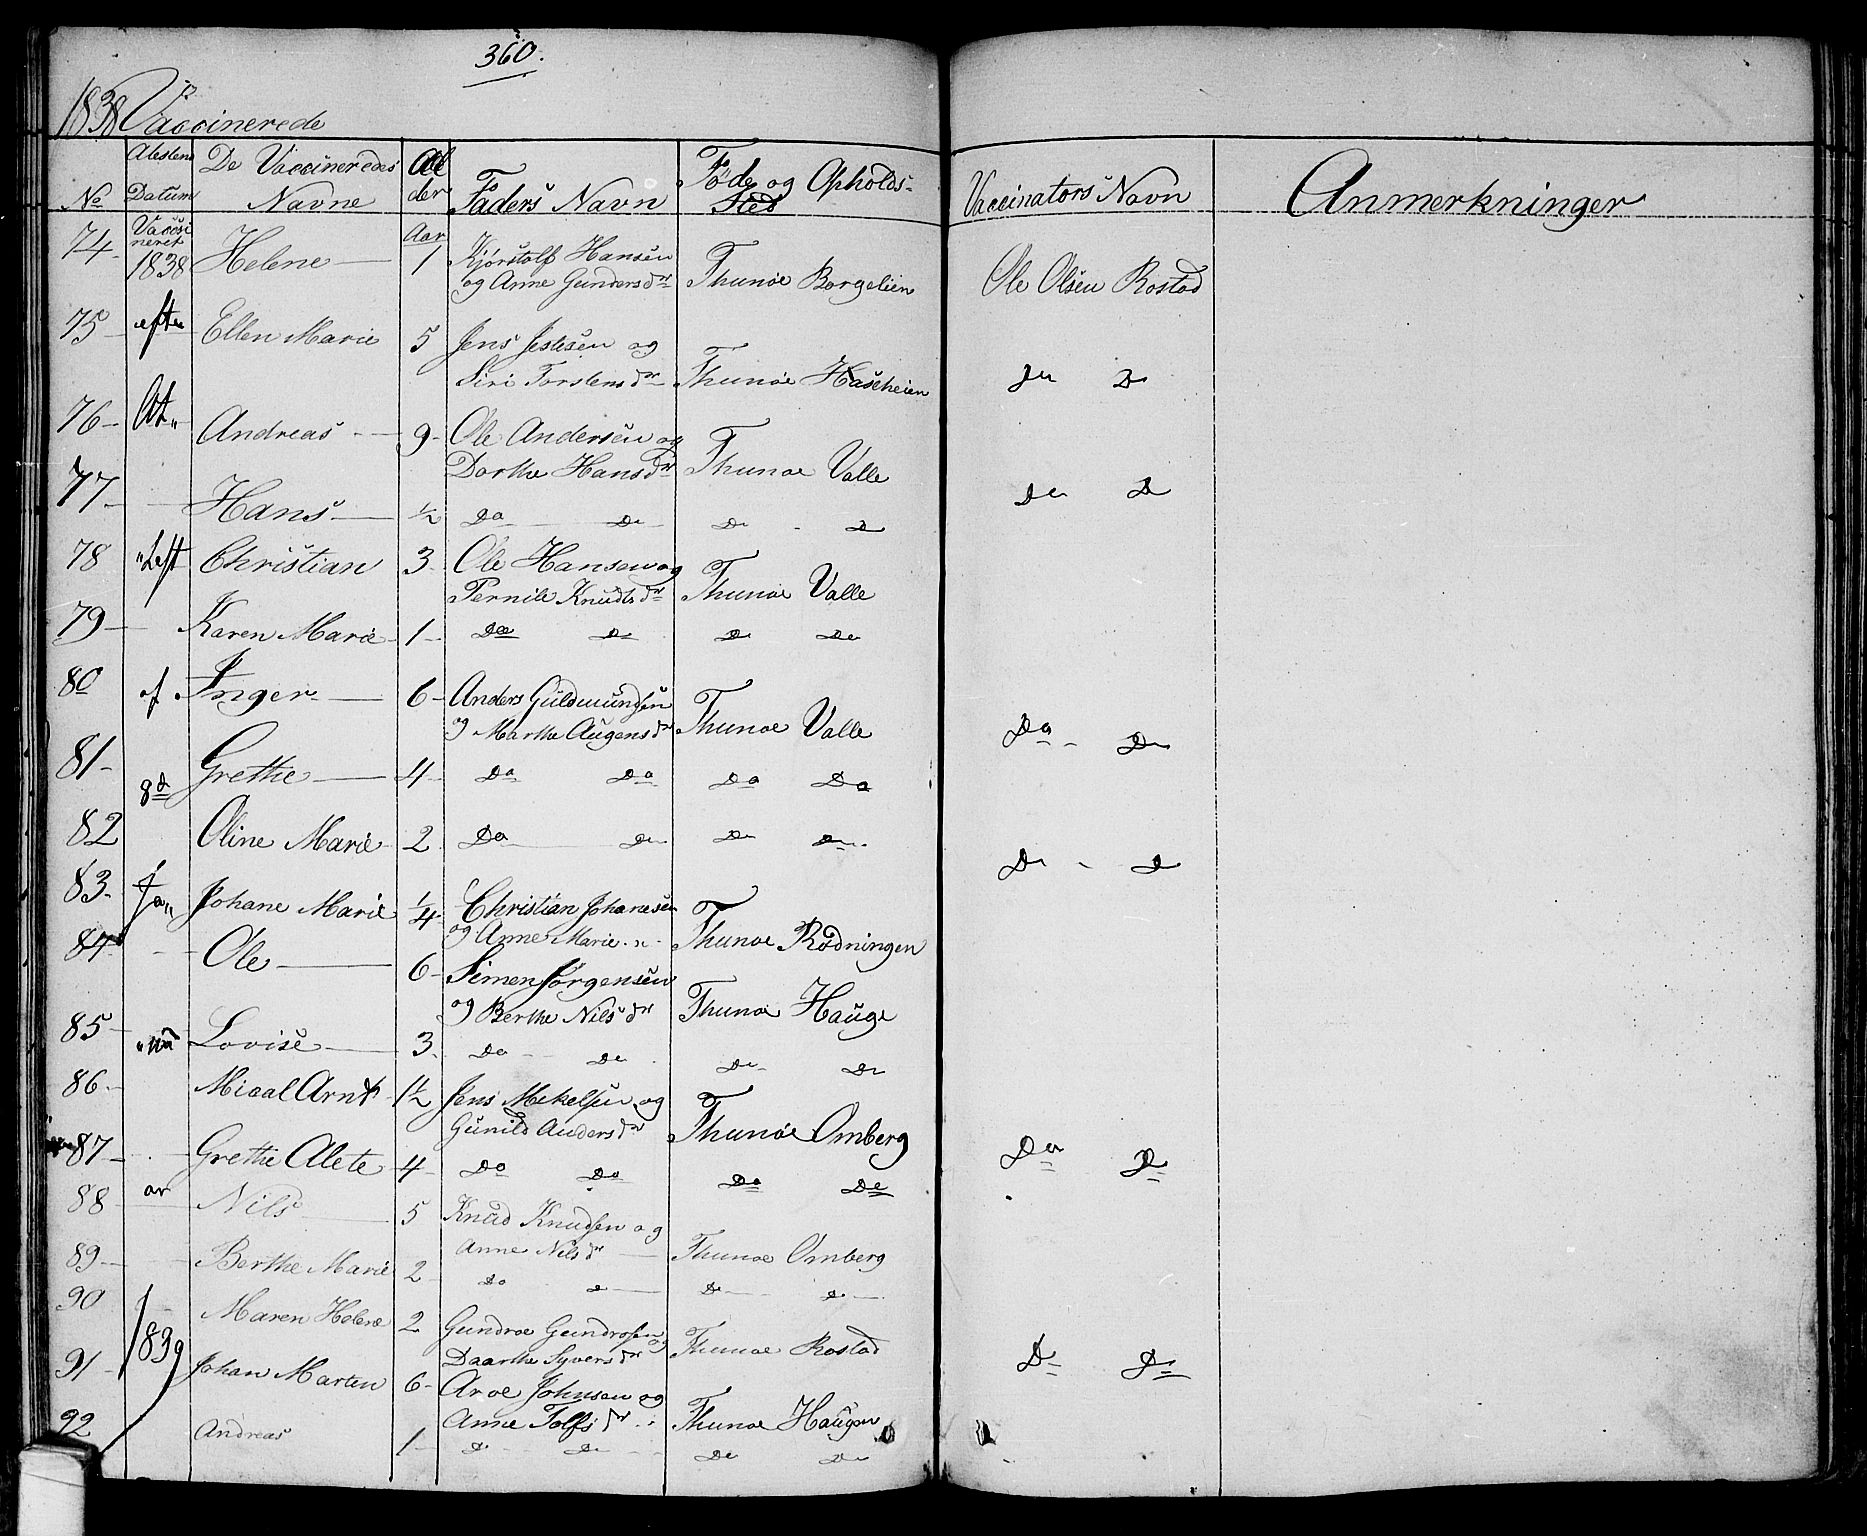 360.
1838 Vaccinerede
No
Atestens Datum
De Vaccineredes Navne
Alder
Faders Navn
Føde og Opholds-Sted
Vaccinators Navn
Anmerkninger
Aar
74 Vaccineret 1838 Helene 1 Kjørstolf Hansen Ole Olsen Rostad
og Anne Gundersdr Thunøe Borgelien
75 efter Ellen Marie 5 Jens og
Siri Torstensdr Thunøe Do Do
76 At„ Andreas 9 Ole Andersen og
Dorthe Hansdr Thunøe Valle
77 Hans ½ Do Do Do Do Do Do
78 Christian 3 Ole Hansen og
Pernile Knudtsdr Thunøe Valle
79 Karen Marie 1 Do Do Do Do
80 af Inger 6 Anders Guldmundsen
og Marthe Augensdr Thunøe Valle Do Do
81 Grethe 4 Do Do Do Do
8d
82 Oline Marie 2 Do Do Do Do Do Do
83 Ja„ Johane Marie ¼ Christian Johanesen
og Anne Marie Thunøe Rødningen
84 Ole 6 Simen Jørgensen
og Berthe Nilsdr Thunøe Hauge
85 Lovise 3 Do Do Do Do
86 Micael Arnt 1½ Jens Mekelsen og
Gunild Andersdr Thunøe Omberg
87 Grethe Alete 4 Do Do Do Do Do Do
88 ar Nils 5 Knud Knudsen og
Anne Nilsdr Thunøe Omberg
89 Berthe Marie 2 Do Do Do Do
90 Maren Helene 2 Gundroe Gundrosen og
Daarthe Syversdr Thunøe Rostad Do Do
1839
91 Johan Marten 6 Aroe Johnsen og
Anne Tolfsdr Thunøe Haugen
92 Andreas 1 Do Do Do Do